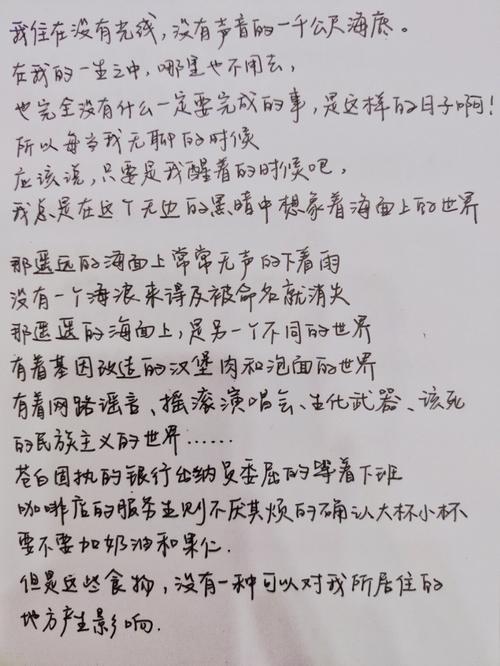 我住在没有光线，没有声音的一千公尺海底。
在我的一生之中，哪里也不用去，
也完全没有什么一定要完成的事，是这样的日子啊！
所以每当我无聊的时候
应该说，只要是我醒着的时候吧，
我总是在这个无边的黑暗中想象着海面上的世界
那遥远的海面上常常无声的下着雨
没有一个海浪来得及被命名就消失
那遥遥的海面上，是另一个不同的世界
有着基因改造的汉堡肉和泡面的世界
有着网路谣言、摇滚演唱会、生化武器、该死
的民族主义的世界……
苍白固执的银行出纳员委屈的等着下班
咖啡店的服务生则不厌其烦的确认大杯小杯
要不要加奶油和果仁.
但是这些食物，没有一种可以对我所居住的
地方产生影响.